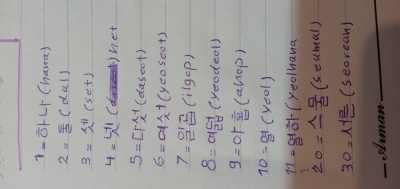 1 = 하나 (hana)
2 = 둘 (dull)
3 = 셋 (set)
4 = 넷 net
5 = 다섯 (daseot)
6 = 여섯 (yeoseot)
7 = 일곱 (ilgop)
8 = 여덟 (yeodeol)
9 = 아홉 (ahop)
10 = 열 (yeol)
11 = 열하 (yeolhana
20 = 스물 (seumal)
30 = 서른 (seorean)
Arman